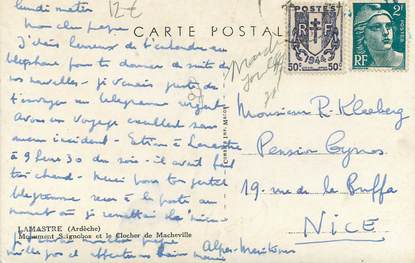 12 €
lundi matin
mon cher papa
CARTE POSTALE
POSTES
RF
1944
50c 50c
POSTES 2F
RF
J'étais heureux de t'entendre au
téléphone pour te donner de suite de
nos nouvelles - je venais juste de
t'envoyer un télégramme urgent
Avons eu voyage excellent sans
aucun incident - Étions à Lamastre
à 9 heures 30 du soir - il avait fait
très chaud - Merci pour ton gentil
télégramme reçu à la porte au
moment où je
LAMASTRE (Ardèche)
Monument Seignobos et le Clocher de Macheville
papa
affectueux baisers
Monsieur R. Kleeberg
Pension Cyrnos
19 rue de la Buffa
NICE
Alpes-Maritimes